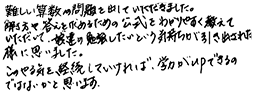 難しい算数の問題を出していただきました。
解き方や答えを求めるための公式をわかりやすく教えて
いただいて、授業の勉強したいという気持ちが引き出された
様に思いました。
このやる気を継続していければ、学力がupできるの
ではないかと思います。